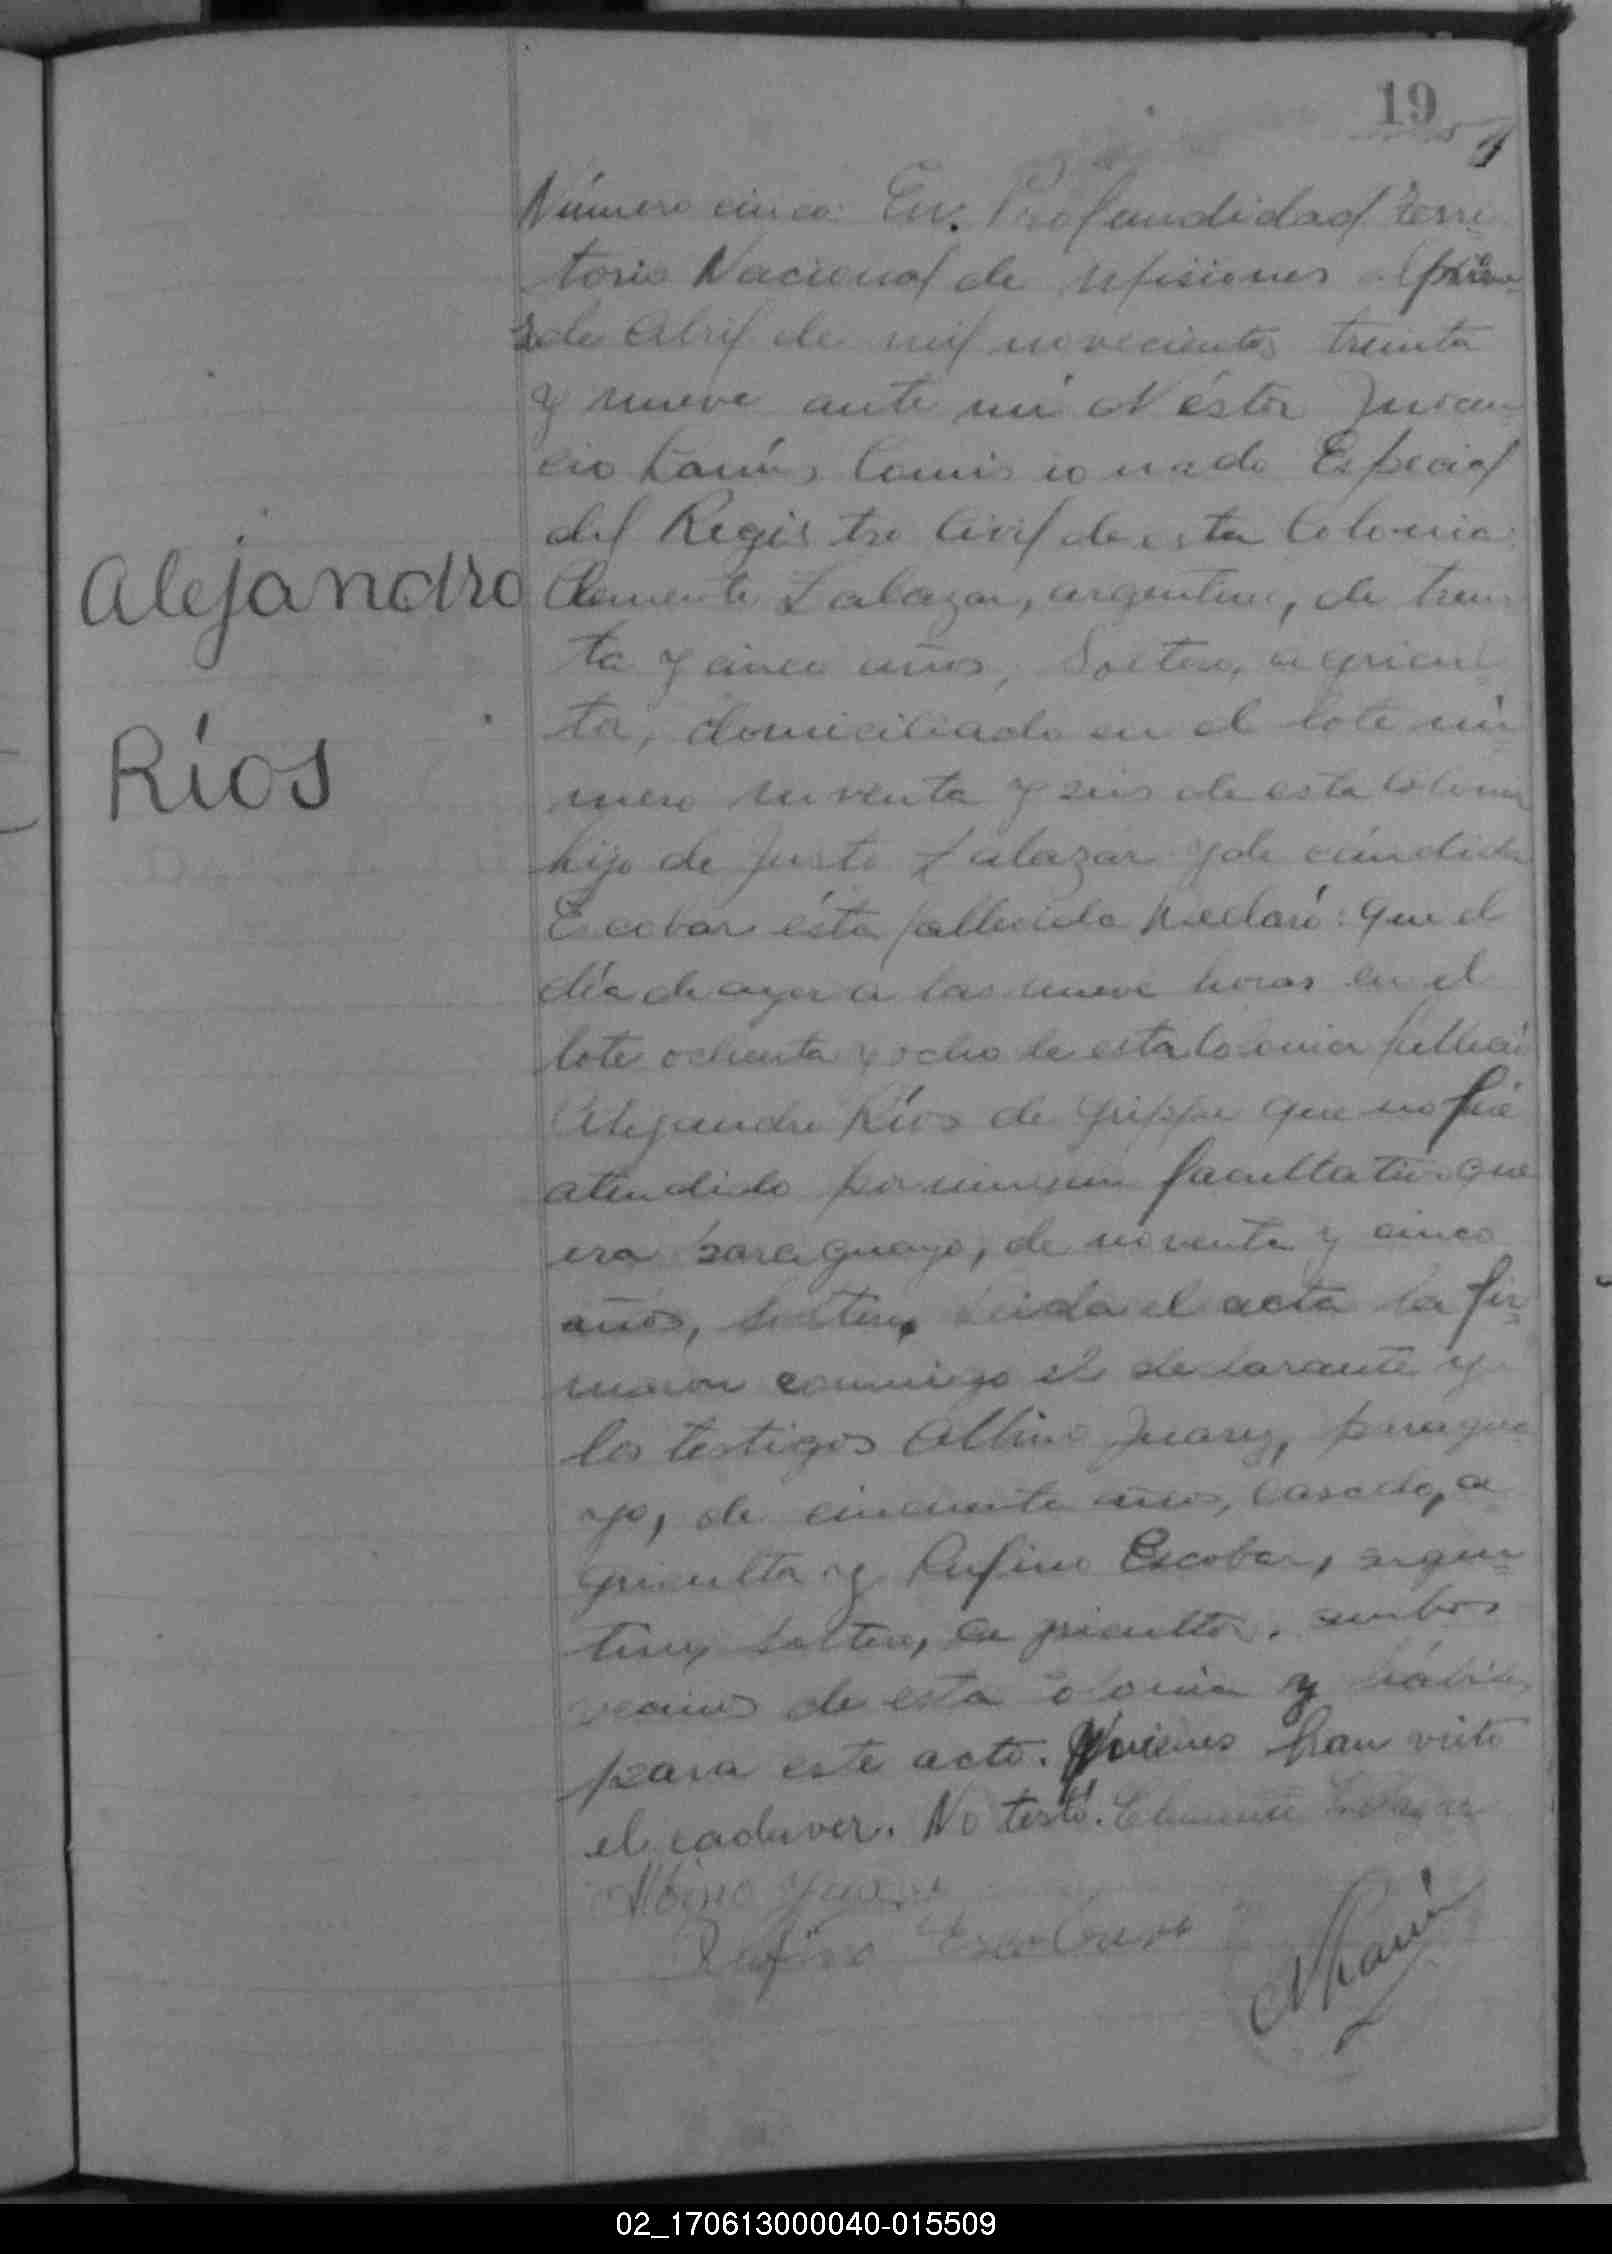 19
Número cinco: En Profundidad, Terri-
torio Nacional de Misiones a
de Abril de mil novecientos treinta
y nueve ante mí Néstor Juvan-
cio Comisionado Especial
del Registro Civil de esta Colonia:
Alejandro
Clemente Salazar, argentino, de trein-
ta y cinco años, soltero, agricul-
tor, domiciliado en el lote nú-
Ríos
mero noventa y seis de esta Colonia
hijo de Justo Salazar y de Cándida
Escobar ésta fallecida Declaró: que el
día de ayer a las nueve horas en el
lote ochenta y ocho de esta Colonia falleció
Alejandro Ríos de grippe que no fué
atendido por ningún facultativo que
era paraguayo, de noventa y cinco
años, soltero, Leida el acta la fir-
maron conmigo el declarante y
los testigos Albino Juarez, paragua-
yo, de cincuenta años, casado, a-
gricultor y Rufino Escobar, argen-
tino, soltero, agricultor, ambos
vecinos de esta Colonia y hábiles
para este acto. Quienes han visto
el cadaver. No testó. Clemente Salazar
Albino Juarez
Rufino Escobar
02_170613000040-015509